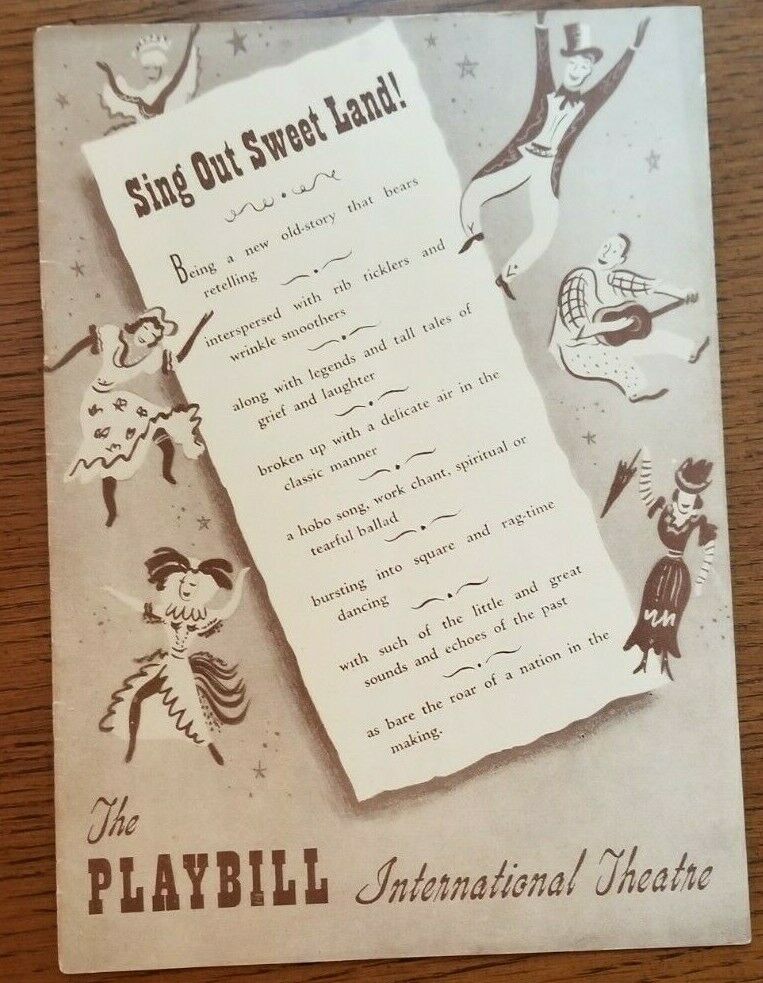 Sing Out Sweet Land!
Being a new old-story that bears
retelling
interspersed with rib ticklers and
wrinkle smoothers
along with legends and tall tales of
grief and laughter
broken up with a delicate air in the
classic manner
a hobo song, work chant, spiritual or
tearful ballad
bursting into square and rag-time
dancing
with such of the little and great
sounds and echoes of the past
as bare the roar of a nation in the
making.
The
PLAYBILL International Theatre